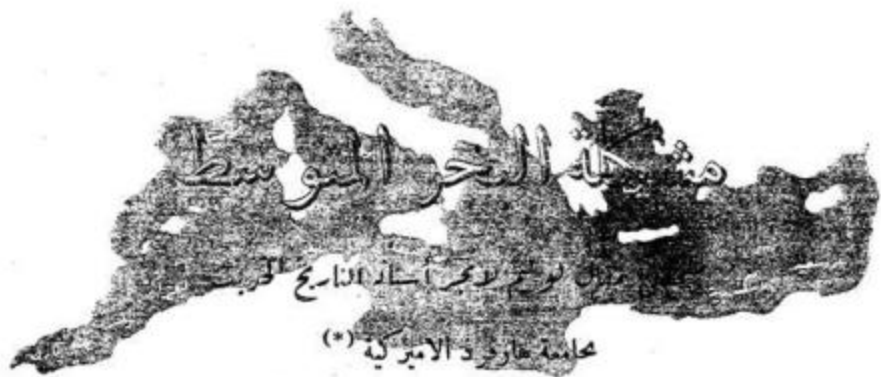 مشكلة البحر المتوسط
لوليم لانجر أستاذ التاريخ
بجامعة هارفرد الاميركية (*)